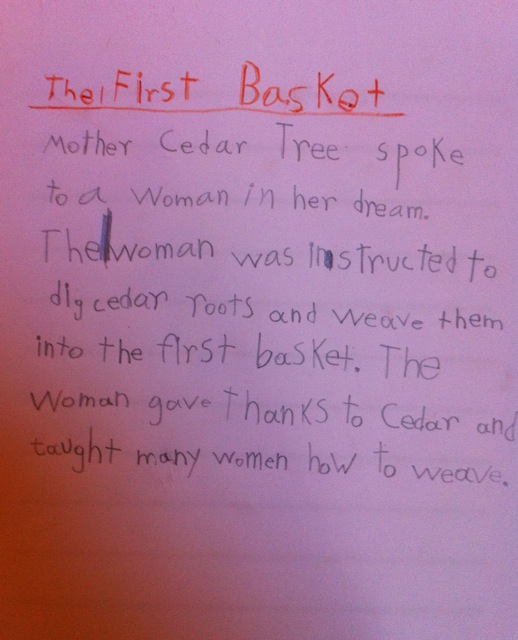 The First Basket
Mother Cedar Tree spoke
to a woman in her dream.
The woman was instructed to
dig cedar roots and weave them
into the first basket. The
Woman gave Thanks to Cedar and
taught many women how to weave.